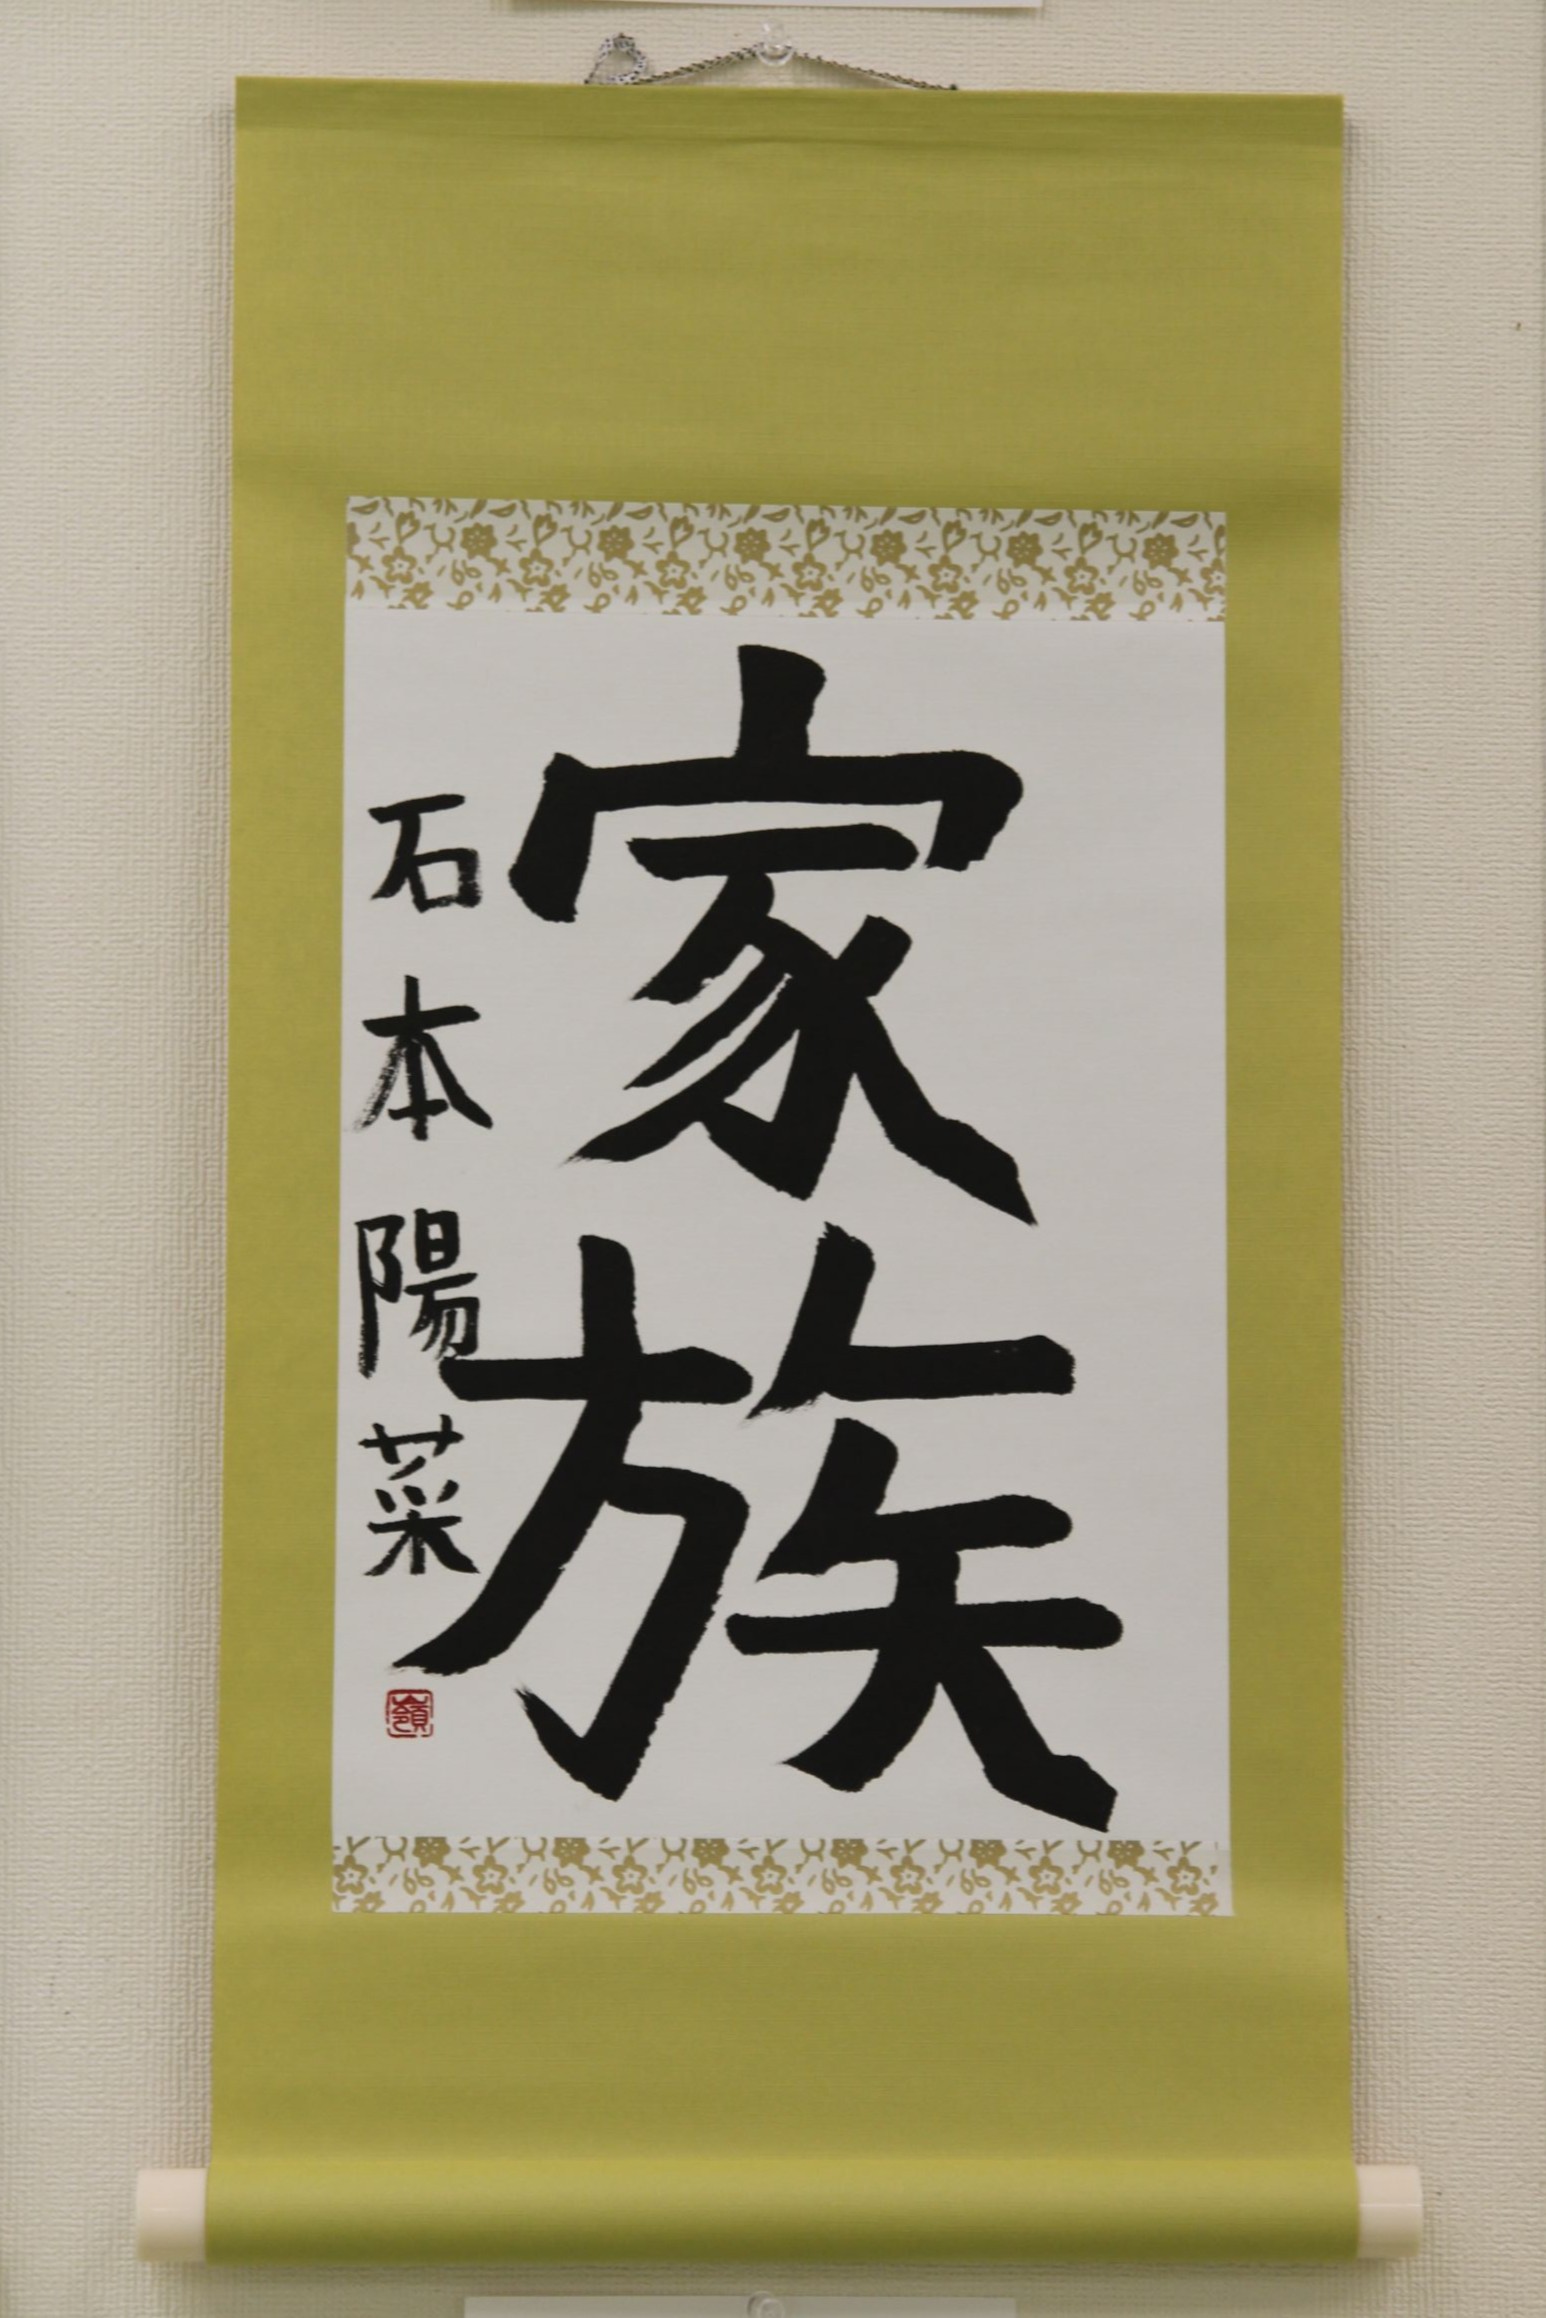 家族
石本陽菜
嶺